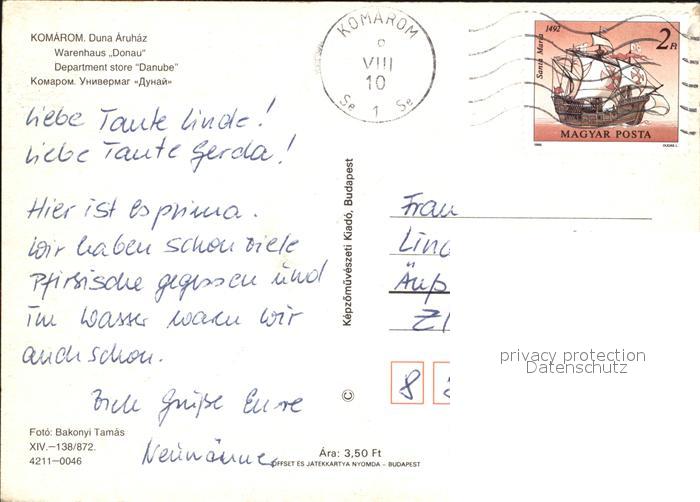 KOMÁROM. Duna Áruház
Warenhaus „Donau"
Department store "Danube"
Комаром. Универмаг «Дунай»
KOMÁROM
VIII
10
Se 1 Se
1492
Santa Maria
2 Ft
MAGYAR POSTA
Liebe Tante Linde!
Liebe Tante Gerda!
Hier ist es prima.
Wir haben schon viele
Pfirsische gegessen und
im Wasser waren wir
auch schon.
Grüße Eure
Képzőművészeti Kiadó, Budapest
©
Frau
8
privacy protection
Datenschutz
Fotó: Bakonyi Tamás
XIV.—138/872.
4211—0046
Ára: 3,50 Ft
OFFSET ÉS JÁTÉKKÁRTYA NYOMDA – BUDAPEST